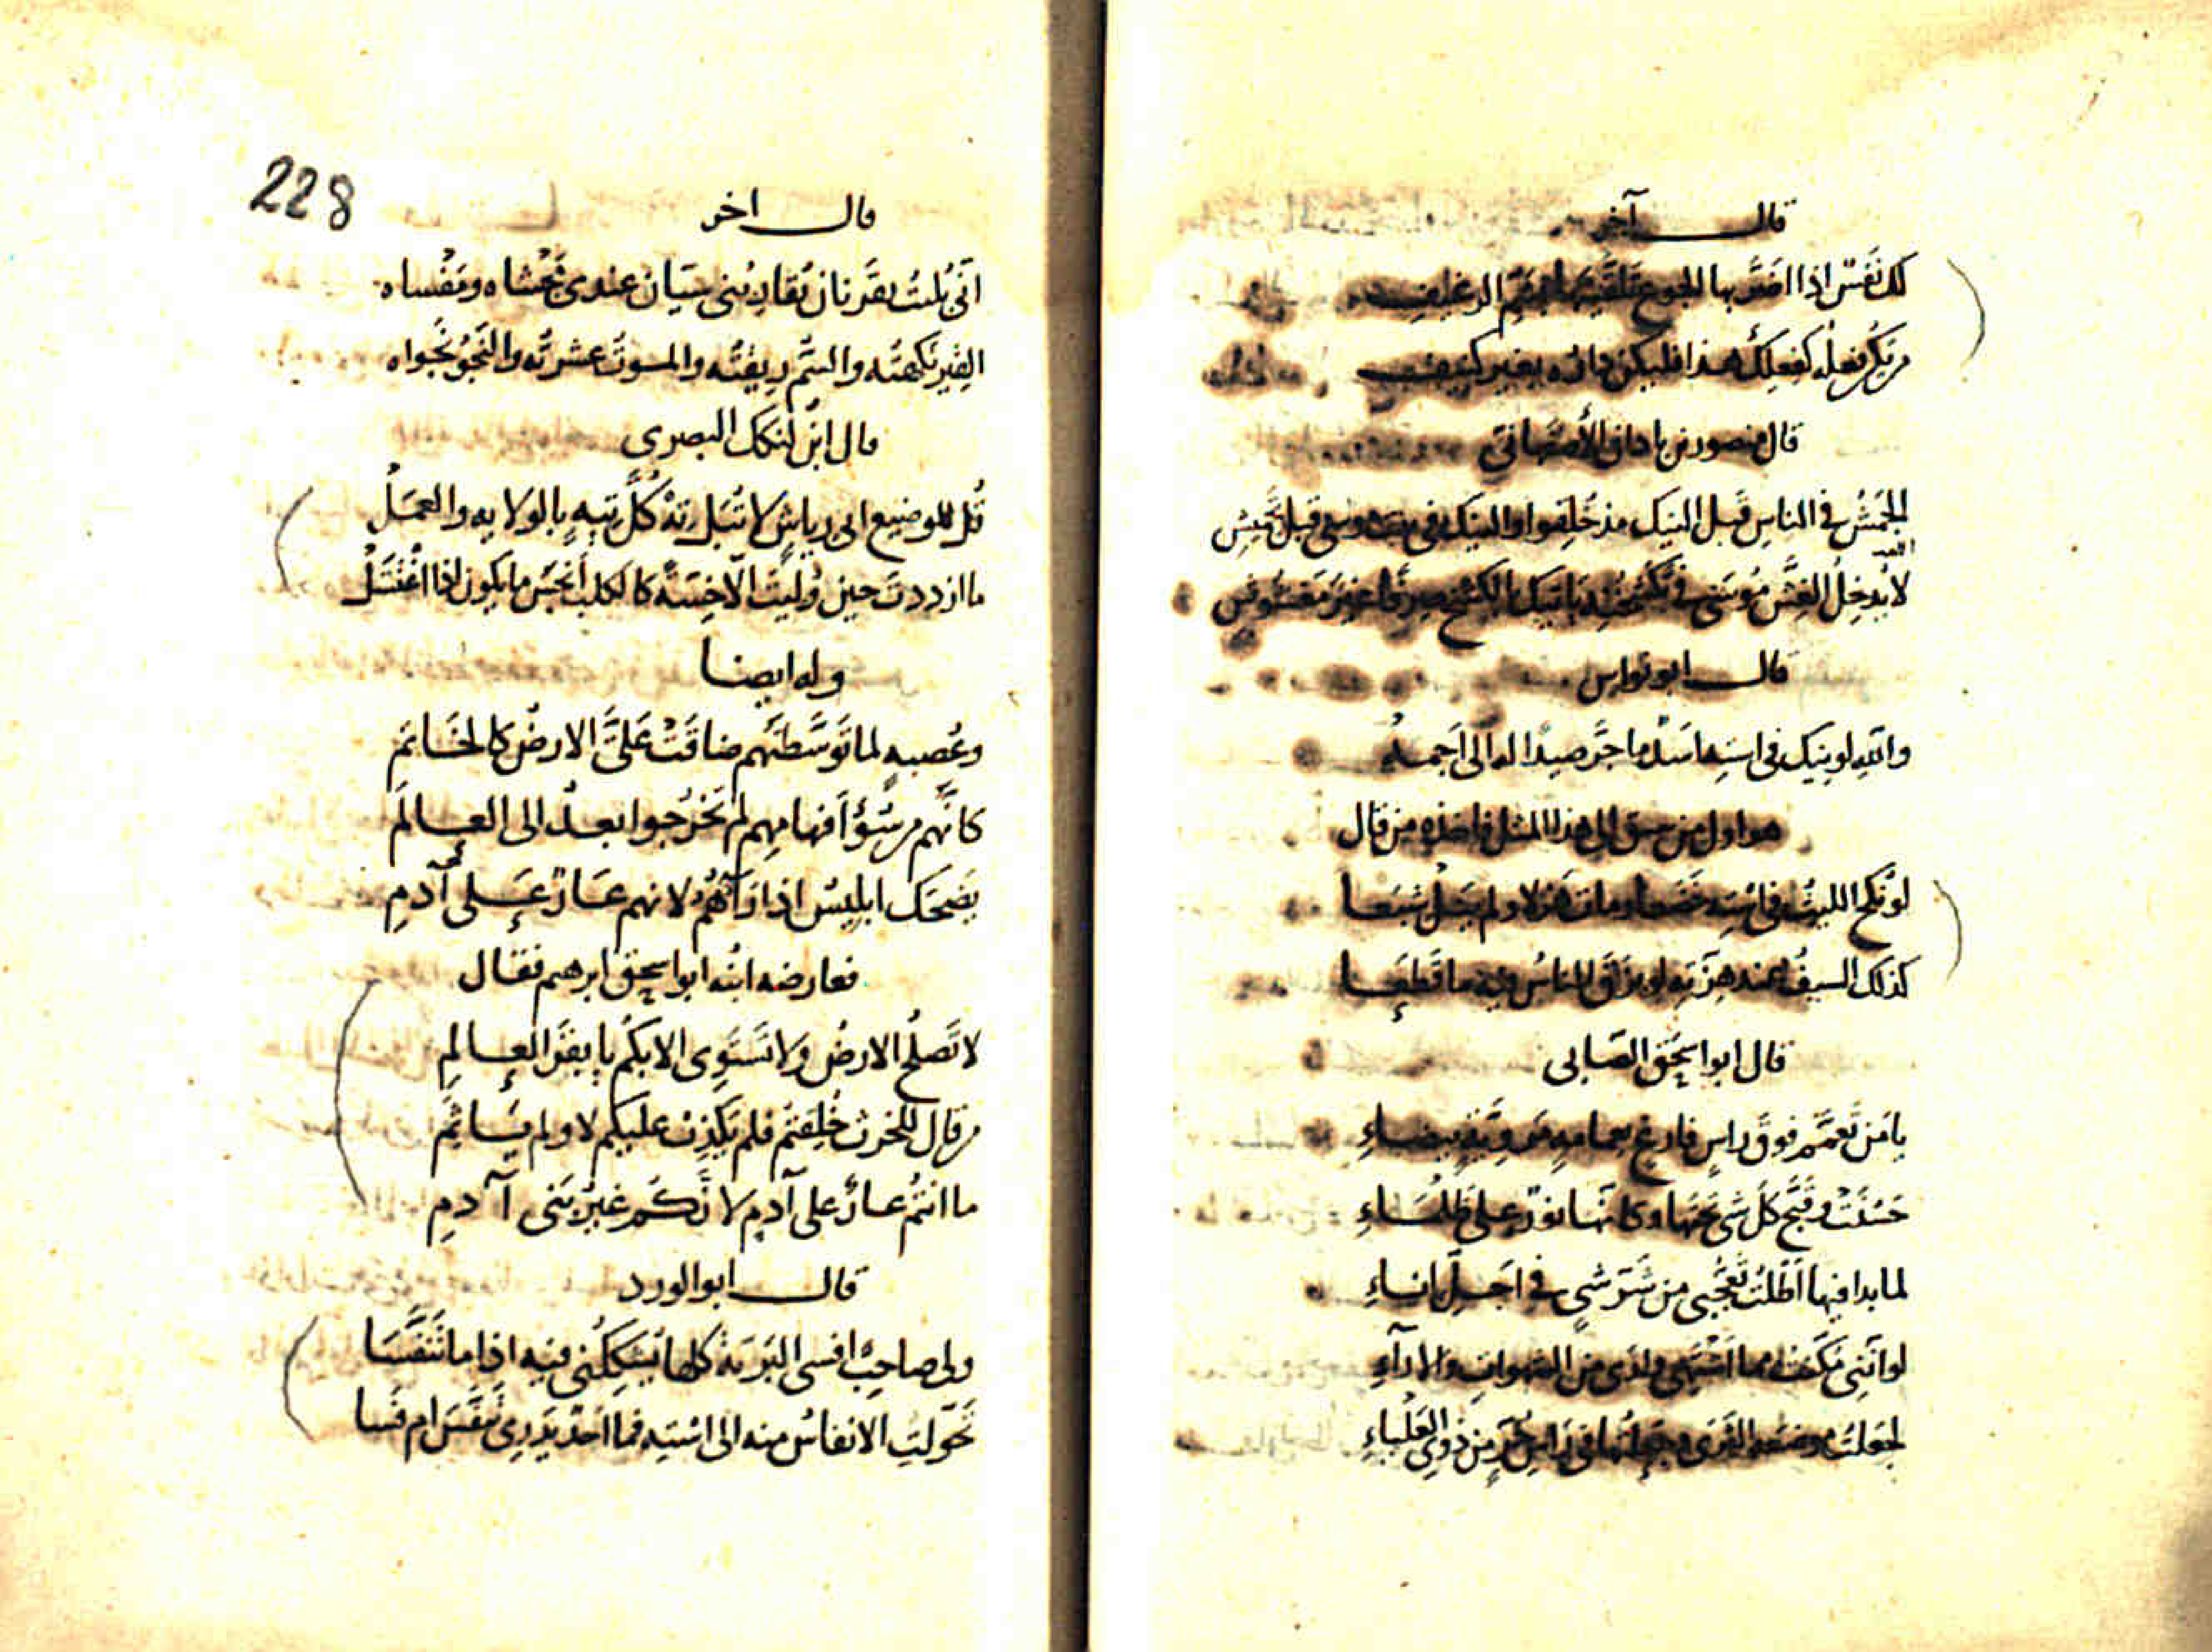 قال آخر
لك نفس اذا اضر بها الجوع
من يكن فعله كفعلك هذا فليكن داره بغير كنيف
قال منصور بن باذان الأصبهاني
الجمش في الناس قبل النيك مذ خلقوا والنيك في قبل
لا يدخل الغش غير مغشوش
قال ابو نواس
والله لو نيك في استه اسد ما جر صيدا له الى اجمه
هو اول من سبق الى هذا المثل فاخذه من قال
لو نكح الليث في استه خضعا ومات هزلا ولم ينل شبعا
كذلك السيف عند هزته لو بزق الناس فيه ما قطعا
قال ابو اسحق الصابى
يا من تعمم فوق راس فارغ بعمامة مروية بيضاء
حسنت وقبح كل شي تحتها وكانها نور على ظلماء
لما بدا فيها اطلت تعجبى من شر شي في اجل اناء
لو اننى مكنت مما اشتهى وارى من الشهوات والاراء
لجعلت موضعه الثرى وجعلتها في راس حر من ذوى العلياء
228
قال اخر
انى بليت بقرنان يقاربنى سيان عندى مجشاه ومفساه
القبر نكهته والسم ريقته والموت عشرته والنجو نجواه
قال ابن لنكك البصرى
قل للوضيع ابى رياش لا تبل ته كل تيه بالولاية والعمل
ما ازددت حين وليت الا خسة كالكلب انجس ما يكون اذا اغتسل
وله ايضا
وعصبة لما توسطتهم ضاقت على الارض كالخاتم
كانهم من سؤ افهامهم لم يخرجوا بعد الى العالم
يضحك ابليس اذا رآهم لانهم عار على آدم
فعارضه ابنه ابو اسحق ابرهيم فقال
لا تصلح الارض ولا تستوى الا بكم يا بقر العالم
من قال للحرث خلقتم فلم يكذب عليكم لا ولم ياثم
ما انتم عار على آدم لانكم غير بنى آدم
قال ابو الورد
ولى صاحب افسى البرية كلها يشككنى فيه اذا ما تنفسا
تحولت الانفاس منه الى استه فما احد يدرى تنفس ام فسا